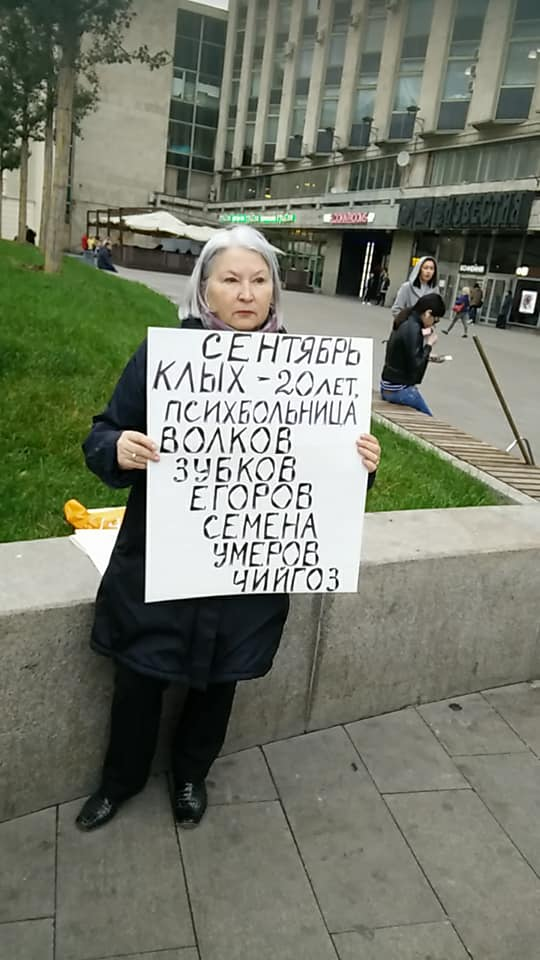 СЕНТЯБРЬ
КЛЫХ - 20 ЛЕТ,
ПСИХБОЛЬНИЦА
ВОЛКОВ
ЗУБКОВ
ЕГОРОВ
СЕМЕНА
УМЕРОВ
ЧИЙГОЗ
ИЗВЕСТИЯ